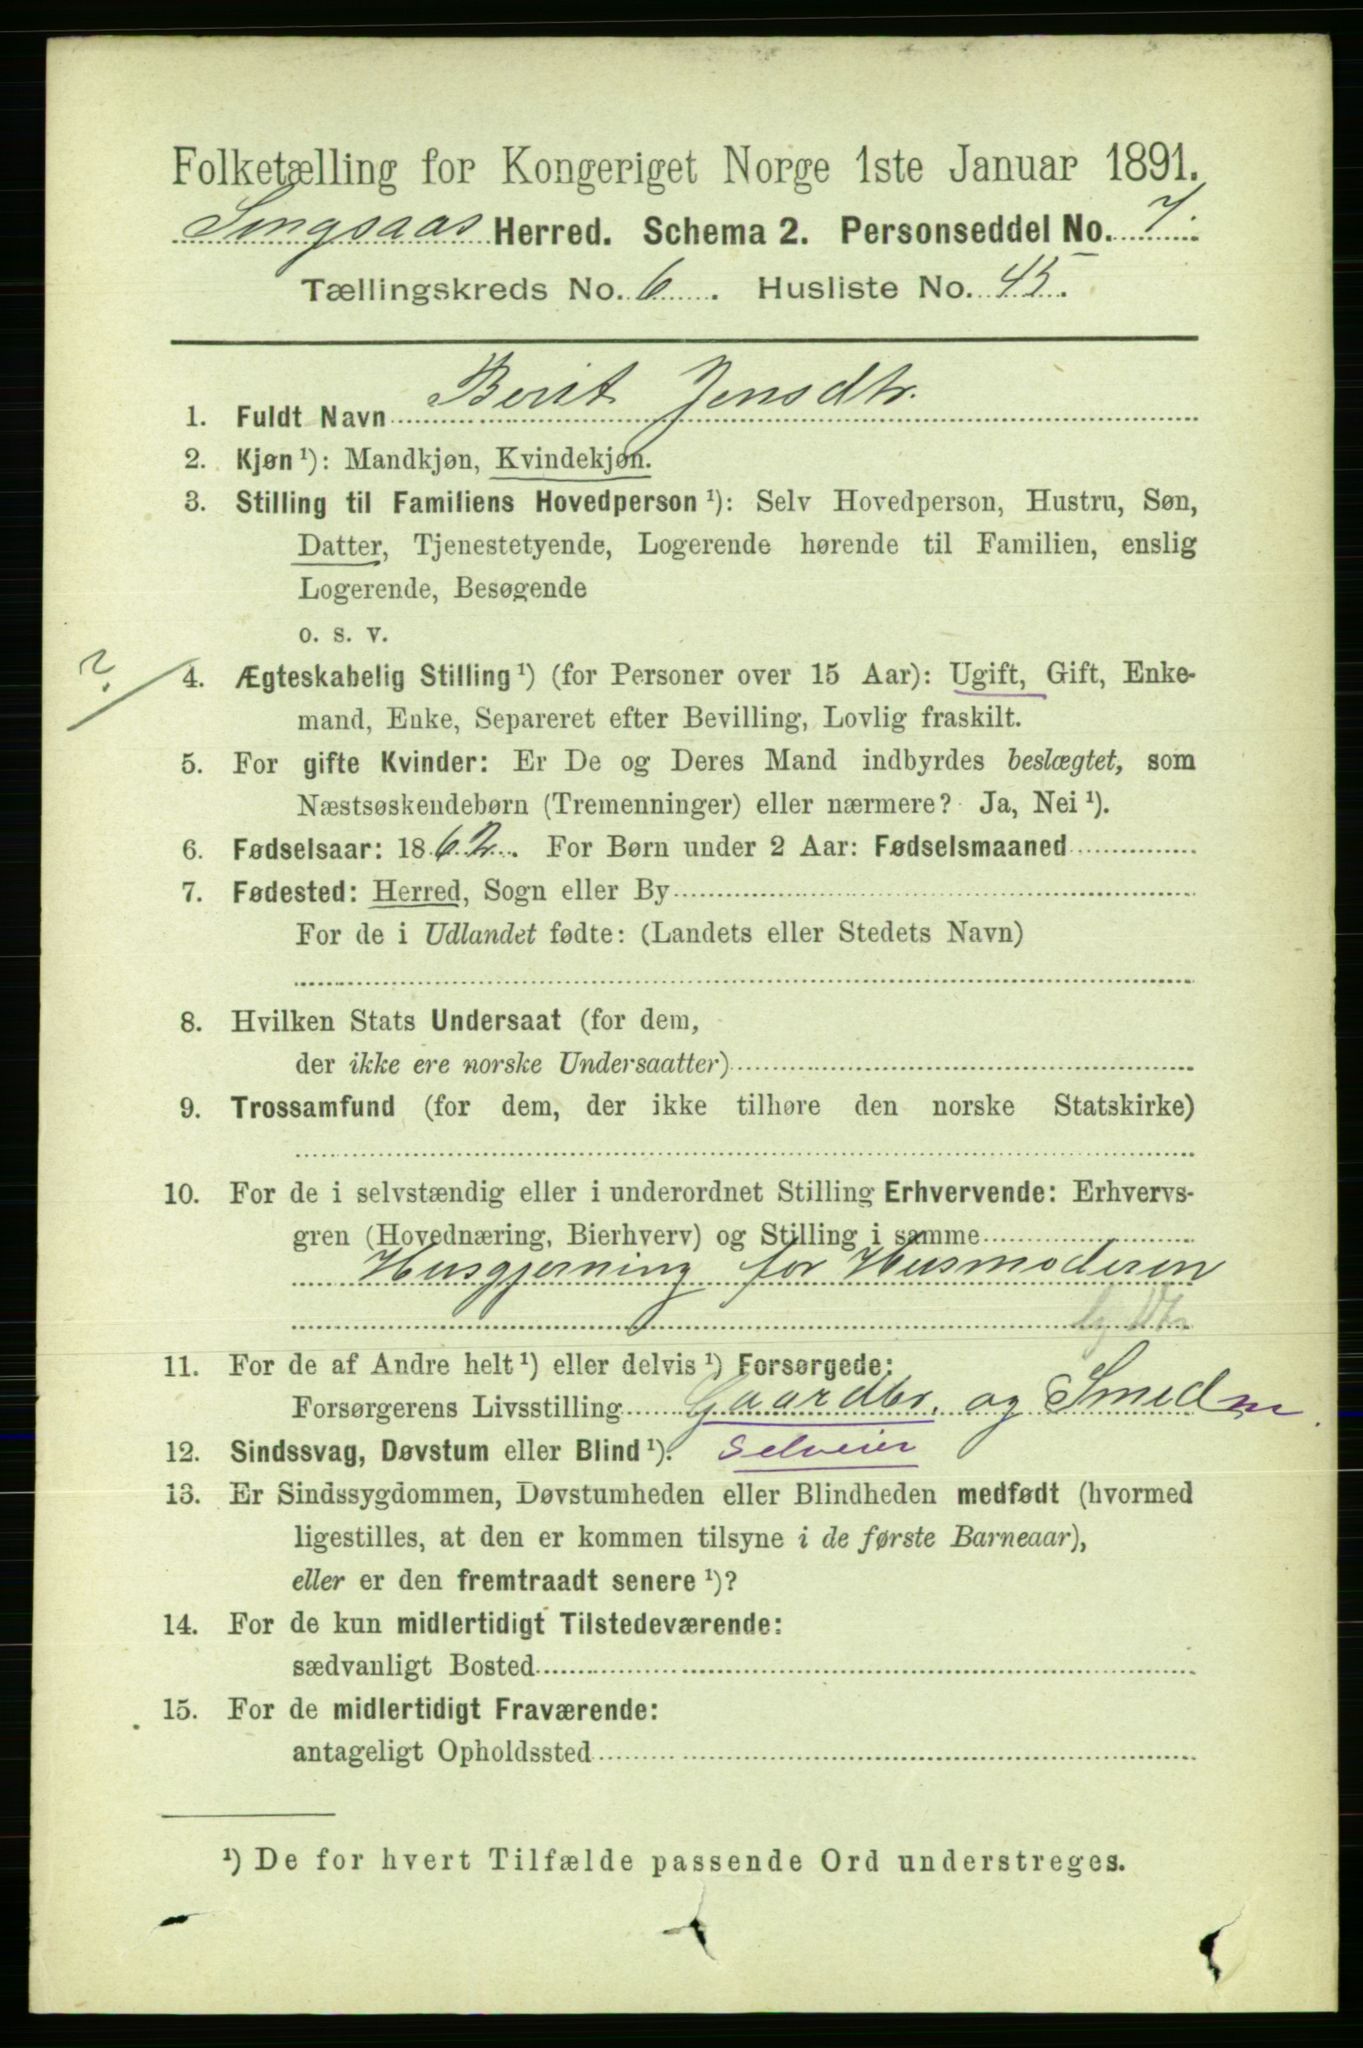 Folketælling for Kongeriget Norge 1ste Januar 1891.
Singsaas Herred. Schema 2. Personseddel No. 7.
Tællingskreds No. 6. Husliste No. 45.
Berit Jensdtr.
1. Fuldt Navn
2. Kjøn ¹): Mandkjøn, Kvindekjøn.
3. Stilling til Familiens Hovedperson ¹): Selv Hovedperson, Hustru, Søn,
Datter, Tjenestetyende, Logerende hørende til Familien, enslig
Logerende, Besøgende
o. s. v.
?
4. Ægteskabelig Stilling ¹) (for Personer over 15 Aar): Ugift, Gift, Enke-
mand, Enke, Separeret efter Bevilling, Lovlig fraskilt.
5. For gifte Kvinder: Er De og Deres Mand indbyrdes beslægtet, som
Næstsøskendebørn (Tremenninger) eller nærmere? Ja, Nei ¹).
6. Fødselsaar: 1862. For Børn under 2 Aar: Fødselsmaaned
7. Fødested: Herred, Sogn eller By
For de i Udlandet fødte: (Landets eller Stedets Navn)
8. Hvilken Stats Undersaat (for dem,
der ikke ere norske Undersaatter)
9. Trossamfund (for dem, der ikke tilhøre den norske Statskirke)
10. For de i selvstændig eller i underordnet Stilling Erhvervende: Erhvervs-
gren (Hovednæring, Bierhverv) og Stilling i samme
Husgjerning for Husmoderen
11. For de af Andre helt ¹) eller delvis ¹) Forsørgede:
Forsørgerens Livsstilling Gaardbr. og Smed
12. Sindssvag, Døvstum eller Blind ¹). Selveier
13. Er Sindssygdommen, Døvstumheden eller Blindheden medfødt (hvormed
ligestilles, at den er kommen tilsyne i de første Barneaar),
eller er den fremtraadt senere ¹)?
14. For de kun midlertidigt Tilstedeværende:
sædvanligt Bosted
15. For de midlertidigt Fraværende:
antageligt Opholdssted
¹) De for hvert Tilfælde passende Ord understreges.